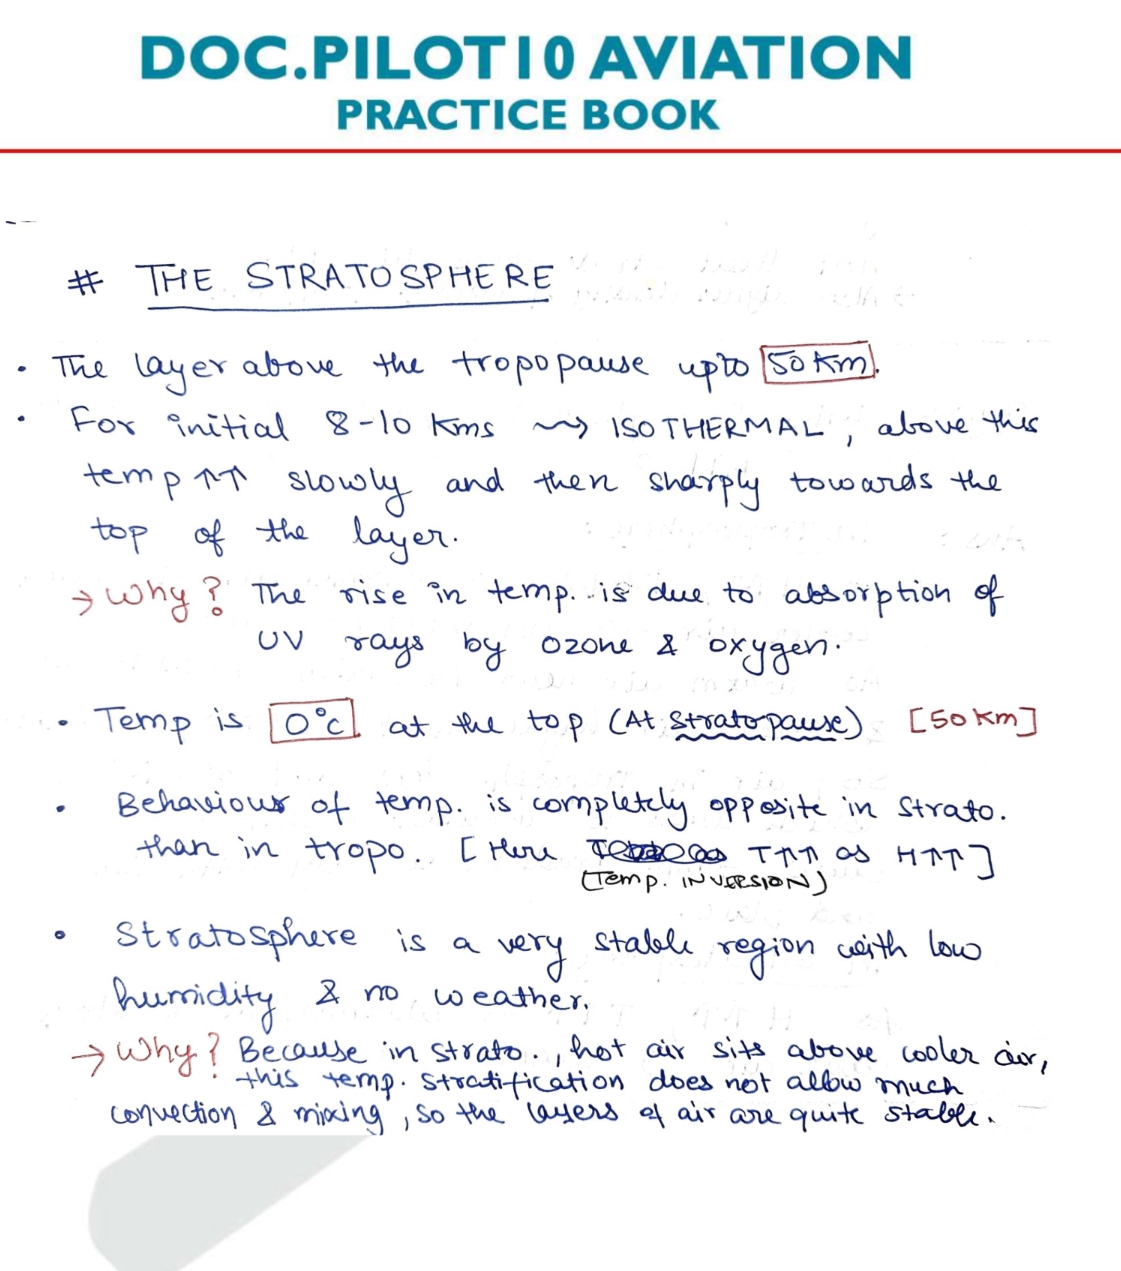 DOC.PILOT10 AVIATION
PRACTICE BOOK
# THE STRATOSPHERE
• The layer above the tropopause upto 50 Km.
• For initial 8-10 Kms ⇝ ISOTHERMAL, above this
temp ↑↑ slowly and then sharply towards the
top of the layer.
→ Why? The rise in temp. is due to absorption of
UV rays by ozone & oxygen.
• Temp is 0°C at the top (At Stratopause) [50 Km]
• Behaviour of temp. is completely opposite in Strato.
than in tropo. [Here T↑↑↑ as H↑↑]
(Temp. INVERSION)
• Stratosphere is a very stable region with low
humidity & no weather.
→ Why? Because in strato., hot air sits above cooler air,
this temp. stratification does not allow much
convection & mixing, so the layers of air are quite stable.